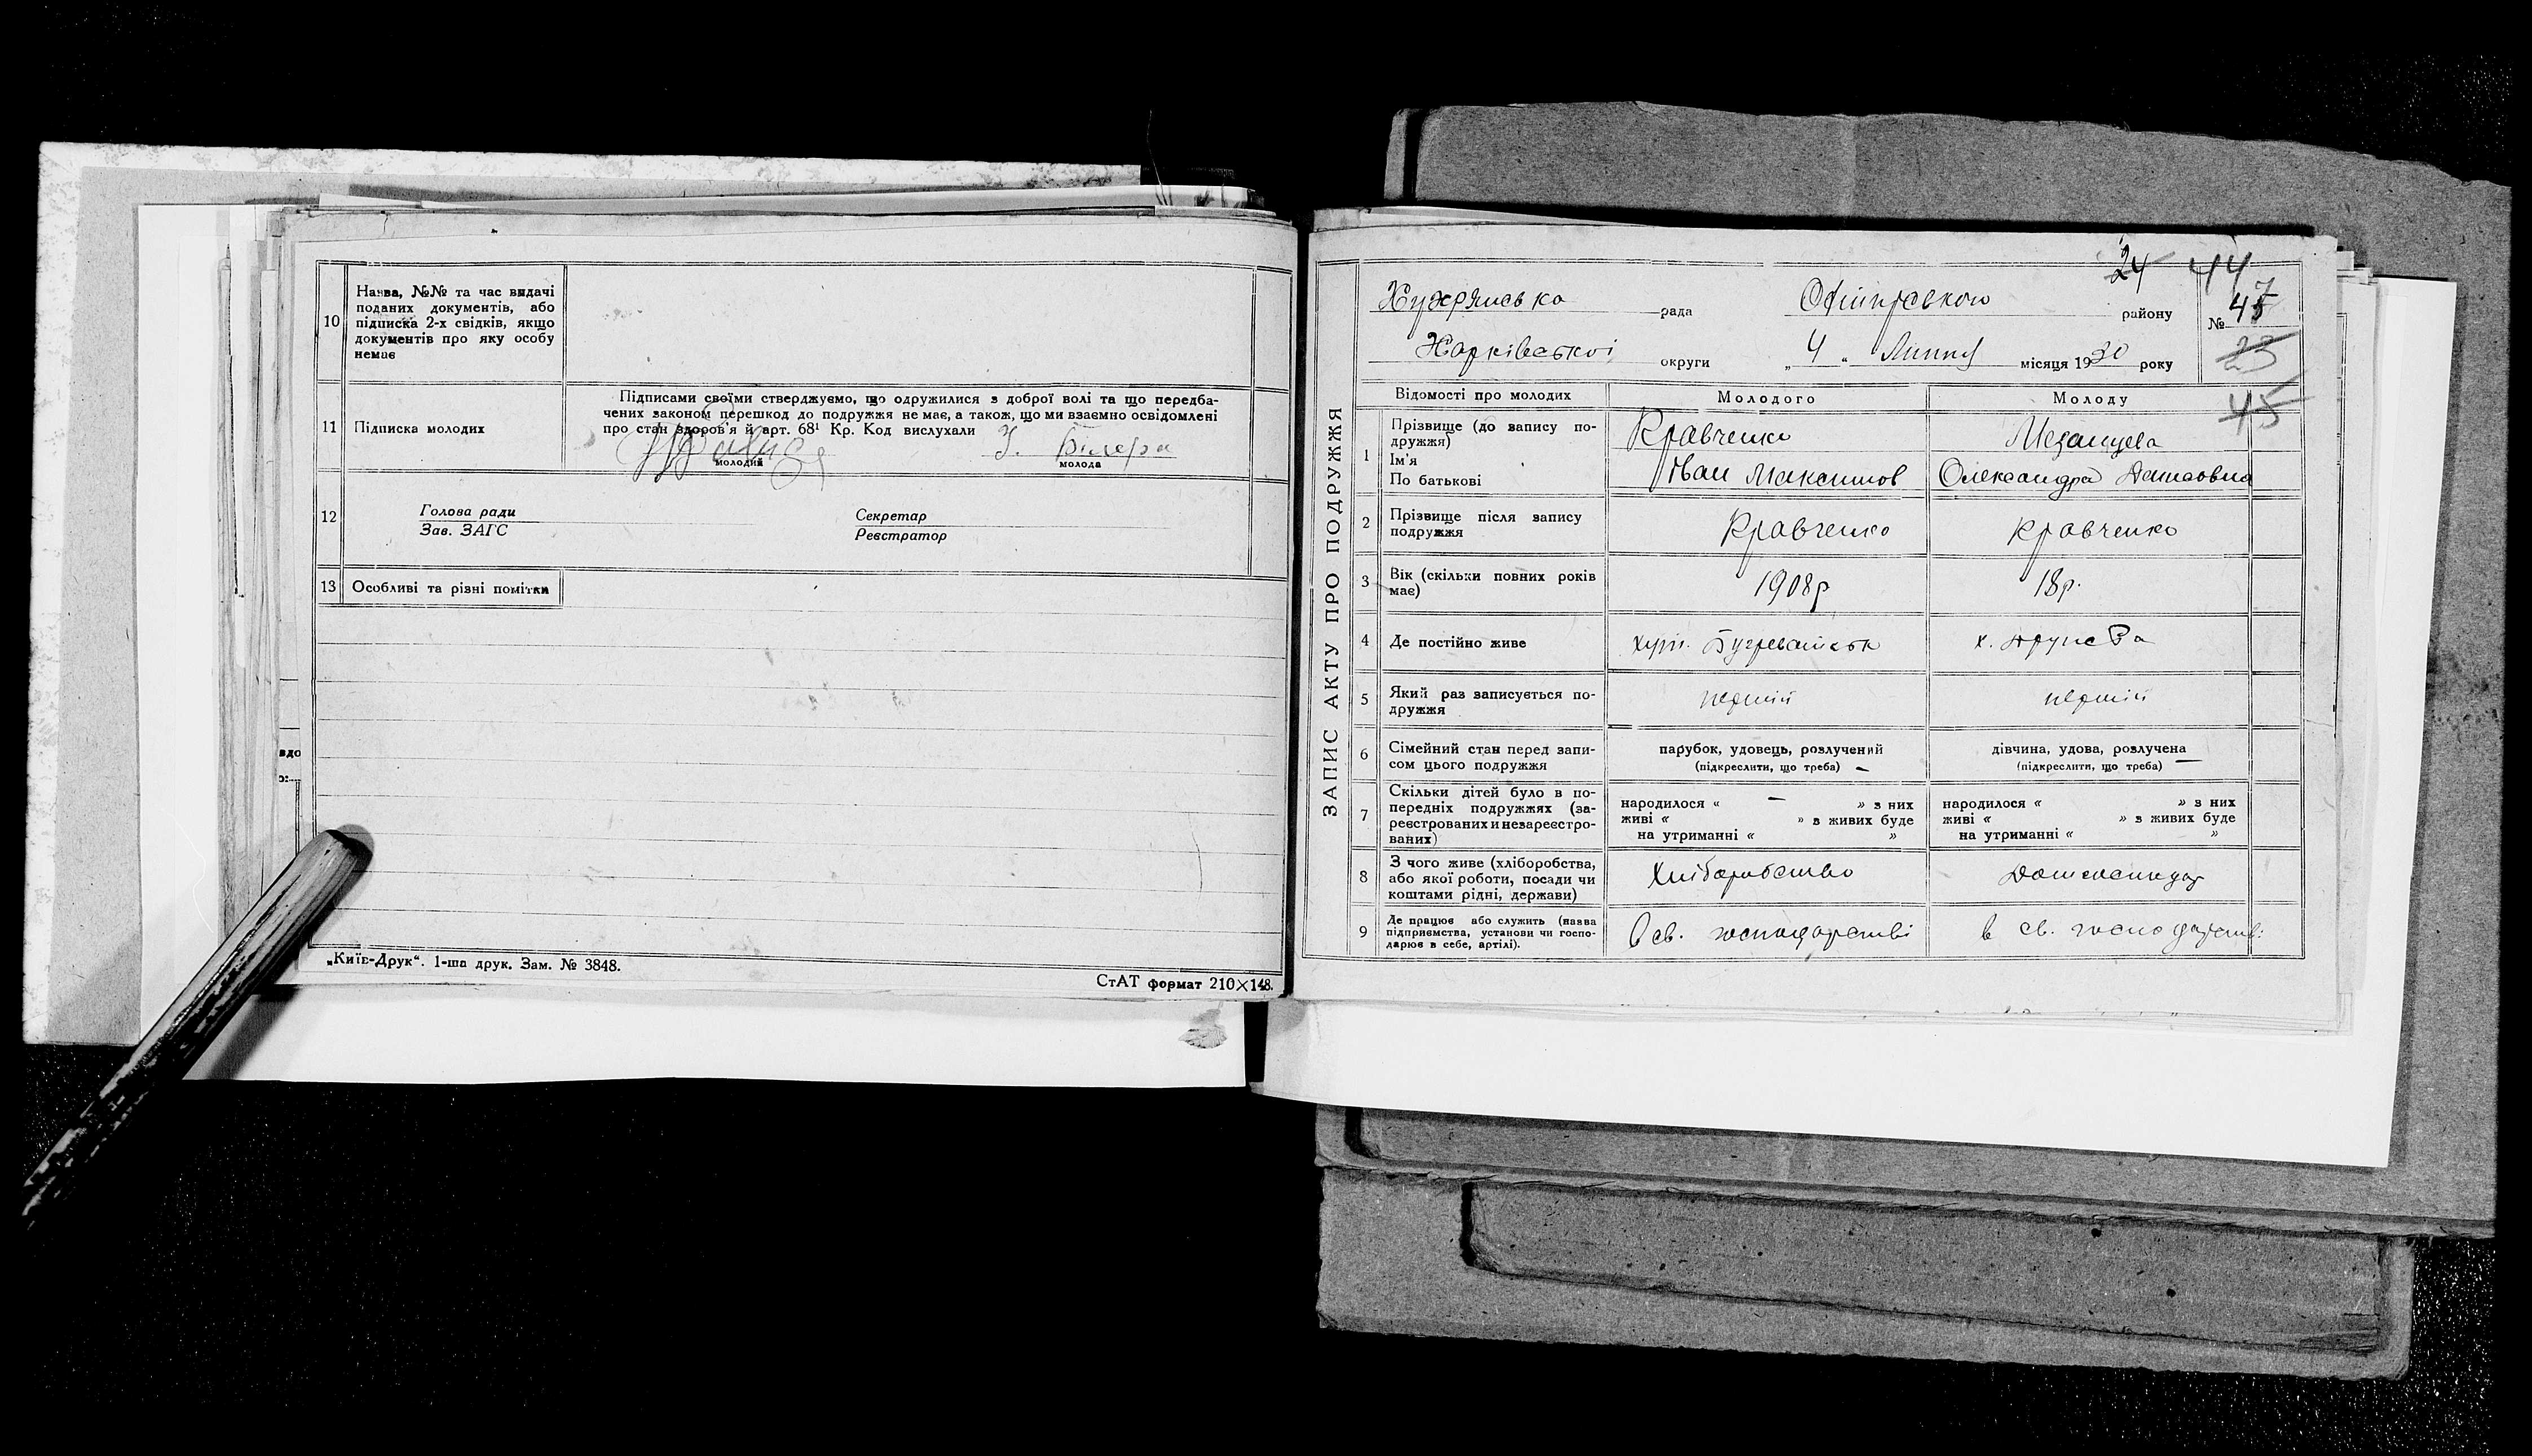 10
Назва, №№ та час видачі
поданих документів, або
підписка 2-х свідків, якщо
документів про яку особу
немає
11
Підписка молодих
Підписами своїми стверджуємо, що одружилися з доброї волі та що передба-
чених законом перешкод до подружжя не має, а також, що ми взаємно освідомлені
про стан здоров'я й арт. 68¹ Кр. Код вислухали
З. Білера
молодий
молода
12
Голова ради
Зав. ЗАГС
Секретар
Реєстратор
13
Особливі та різні помітки
вдо
„Київ-Друк“. 1-ша друк. Зам. № 3848.
СтАТ формат 210×148.
ЗАПИС АКТУ ПРО ПОДРУЖЖЯ
24 44
рада
району
№ 47
Харківської округи „ 4 „ Липня місяця 1930 року
23
45
Відомості про молодих
Молодого
Молоду
1
Прізвище (до запису по-
дружжя)
Ім'я
По батькові
Кравченко
Іван Максимов
Олександра
2
Прізвище після запису
подружжя
Кравченко
Кравченко
3
Вік (скільки повних років
має)
1908р
18р.
4
Де постійно живе
хут.
х.
5
Який раз записується по-
дружжя
перший
перший
6
Сімейний стан перед запи-
сом цього подружжя
парубок, удовець, розлучений
(підкреслити, що треба) —
дівчина, удова, розлучена
(підкреслити, що треба) —
7
Скільки дітей було в по-
передніх подружжях (за-
реєстрованих и незареєстро-
ваних)
народилося « — » з них
живі « » в живих буде
на утриманні « »
народилося « » з них
живі « » з живих буде
на утриманні « »
8
З чого живе (хліборобства,
або якої роботи, посади чи
коштами рідні, держави)
Хліборобство
9
Де працює або служить (назва
підприємства, установи чи госпо-
дарює в себе, артілі).
В св. господарстві
в св. господарстві